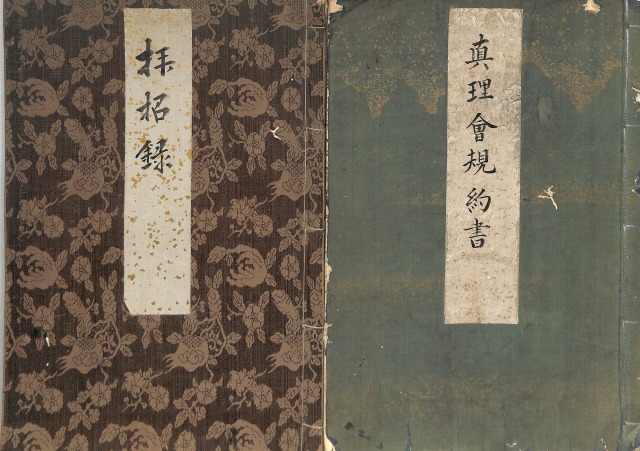 拝招録
真理會規約書